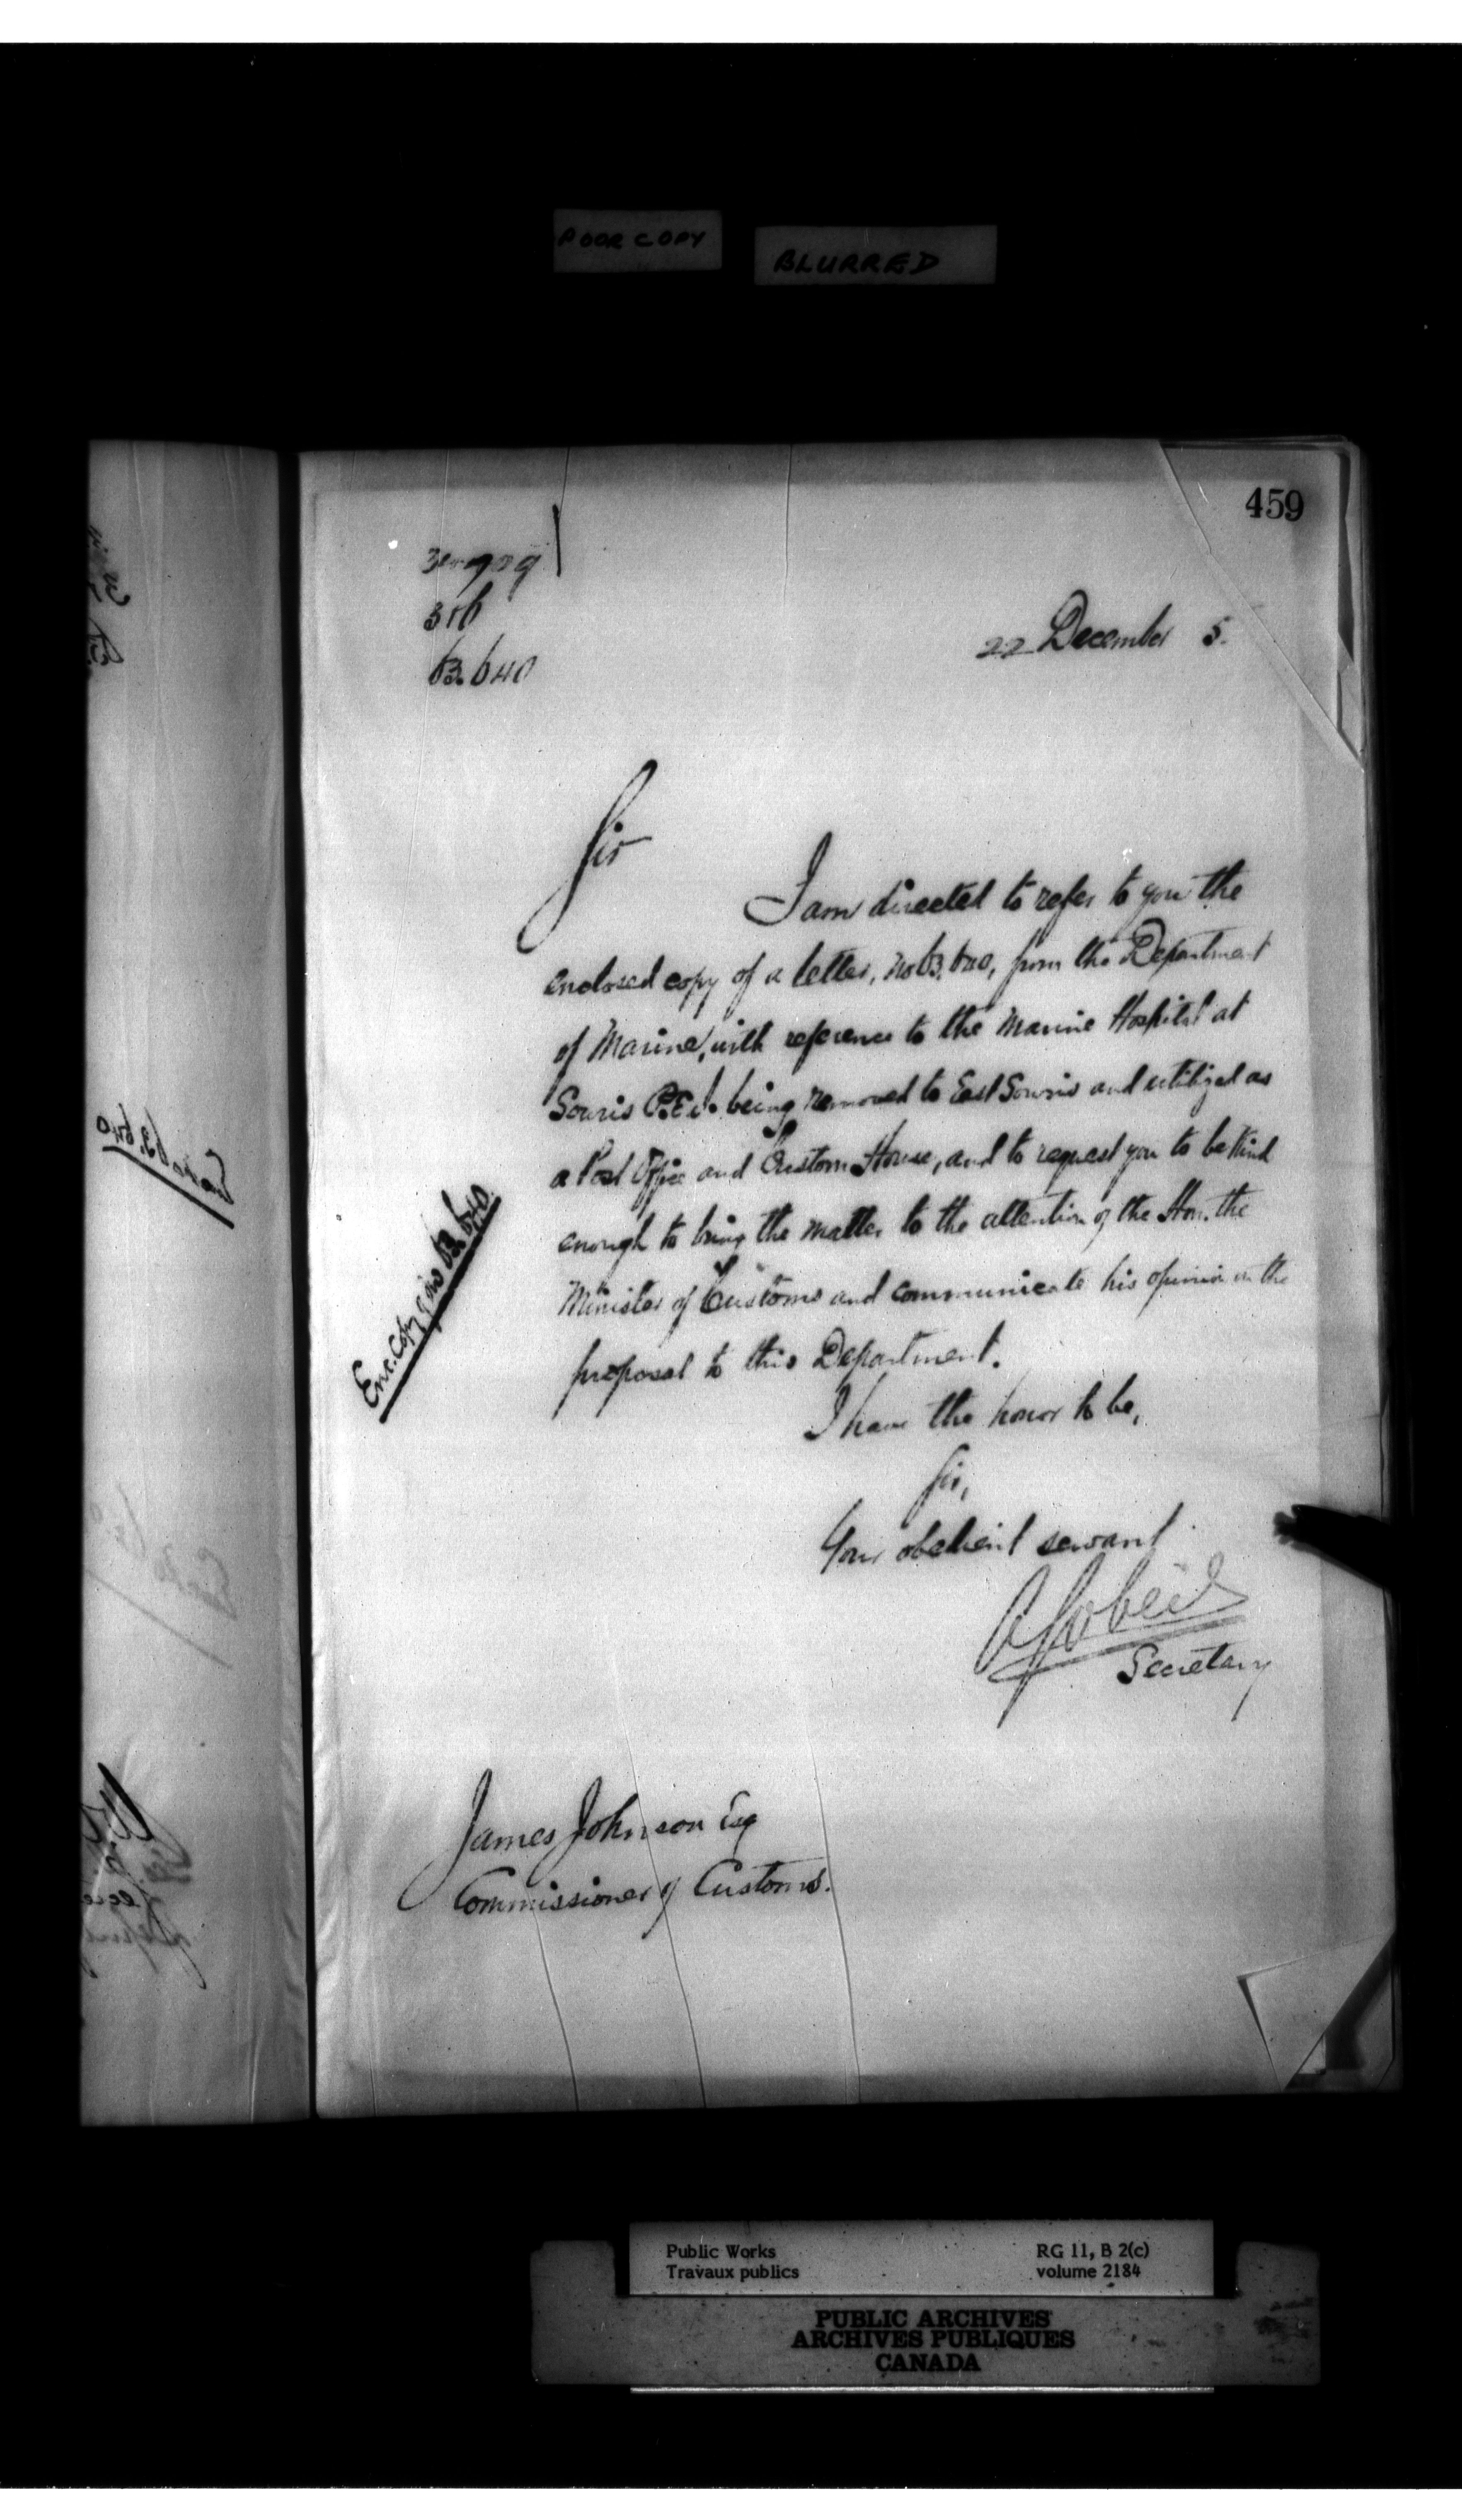 POOR COPY
BLURRED
459
316
63.640
22 December 5.
Sir
I am directed to refer to you the
enclosed copy of a letter, no 63.640, from the Department
of Marine, with reference to the Marine Hospital at
Souris P.E.I. being removed to East Souris and utilized as
a Post Office and Custom House, and to request you to be kind
enough to bring the matter to the attention of the Hon. the
Minister of Customs and communicate his opinion on the
proposal to this Department.
I have the honor to be,
Sir,
Your obedient servant
Secretary
Enc. Copy of no 63.640
James Johnson Esq
Commissioner of Customs.
Public Works
Travaux publics
RG 11, B 2(c)
volume 2184
PUBLIC ARCHIVES
ARCHIVES PUBLIQUES
CANADA